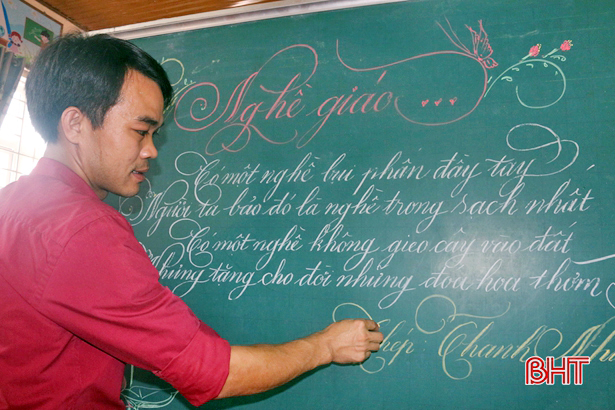 Nghề giáo...
Có một nghề bụi phấn đầy tay
Người ta bảo đó là nghề trong sạch nhất
Có một nghề không gieo cây vào đất
Nhưng tặng cho đời những đóa hoa thơm
Chép: Thanh Nh
BHT